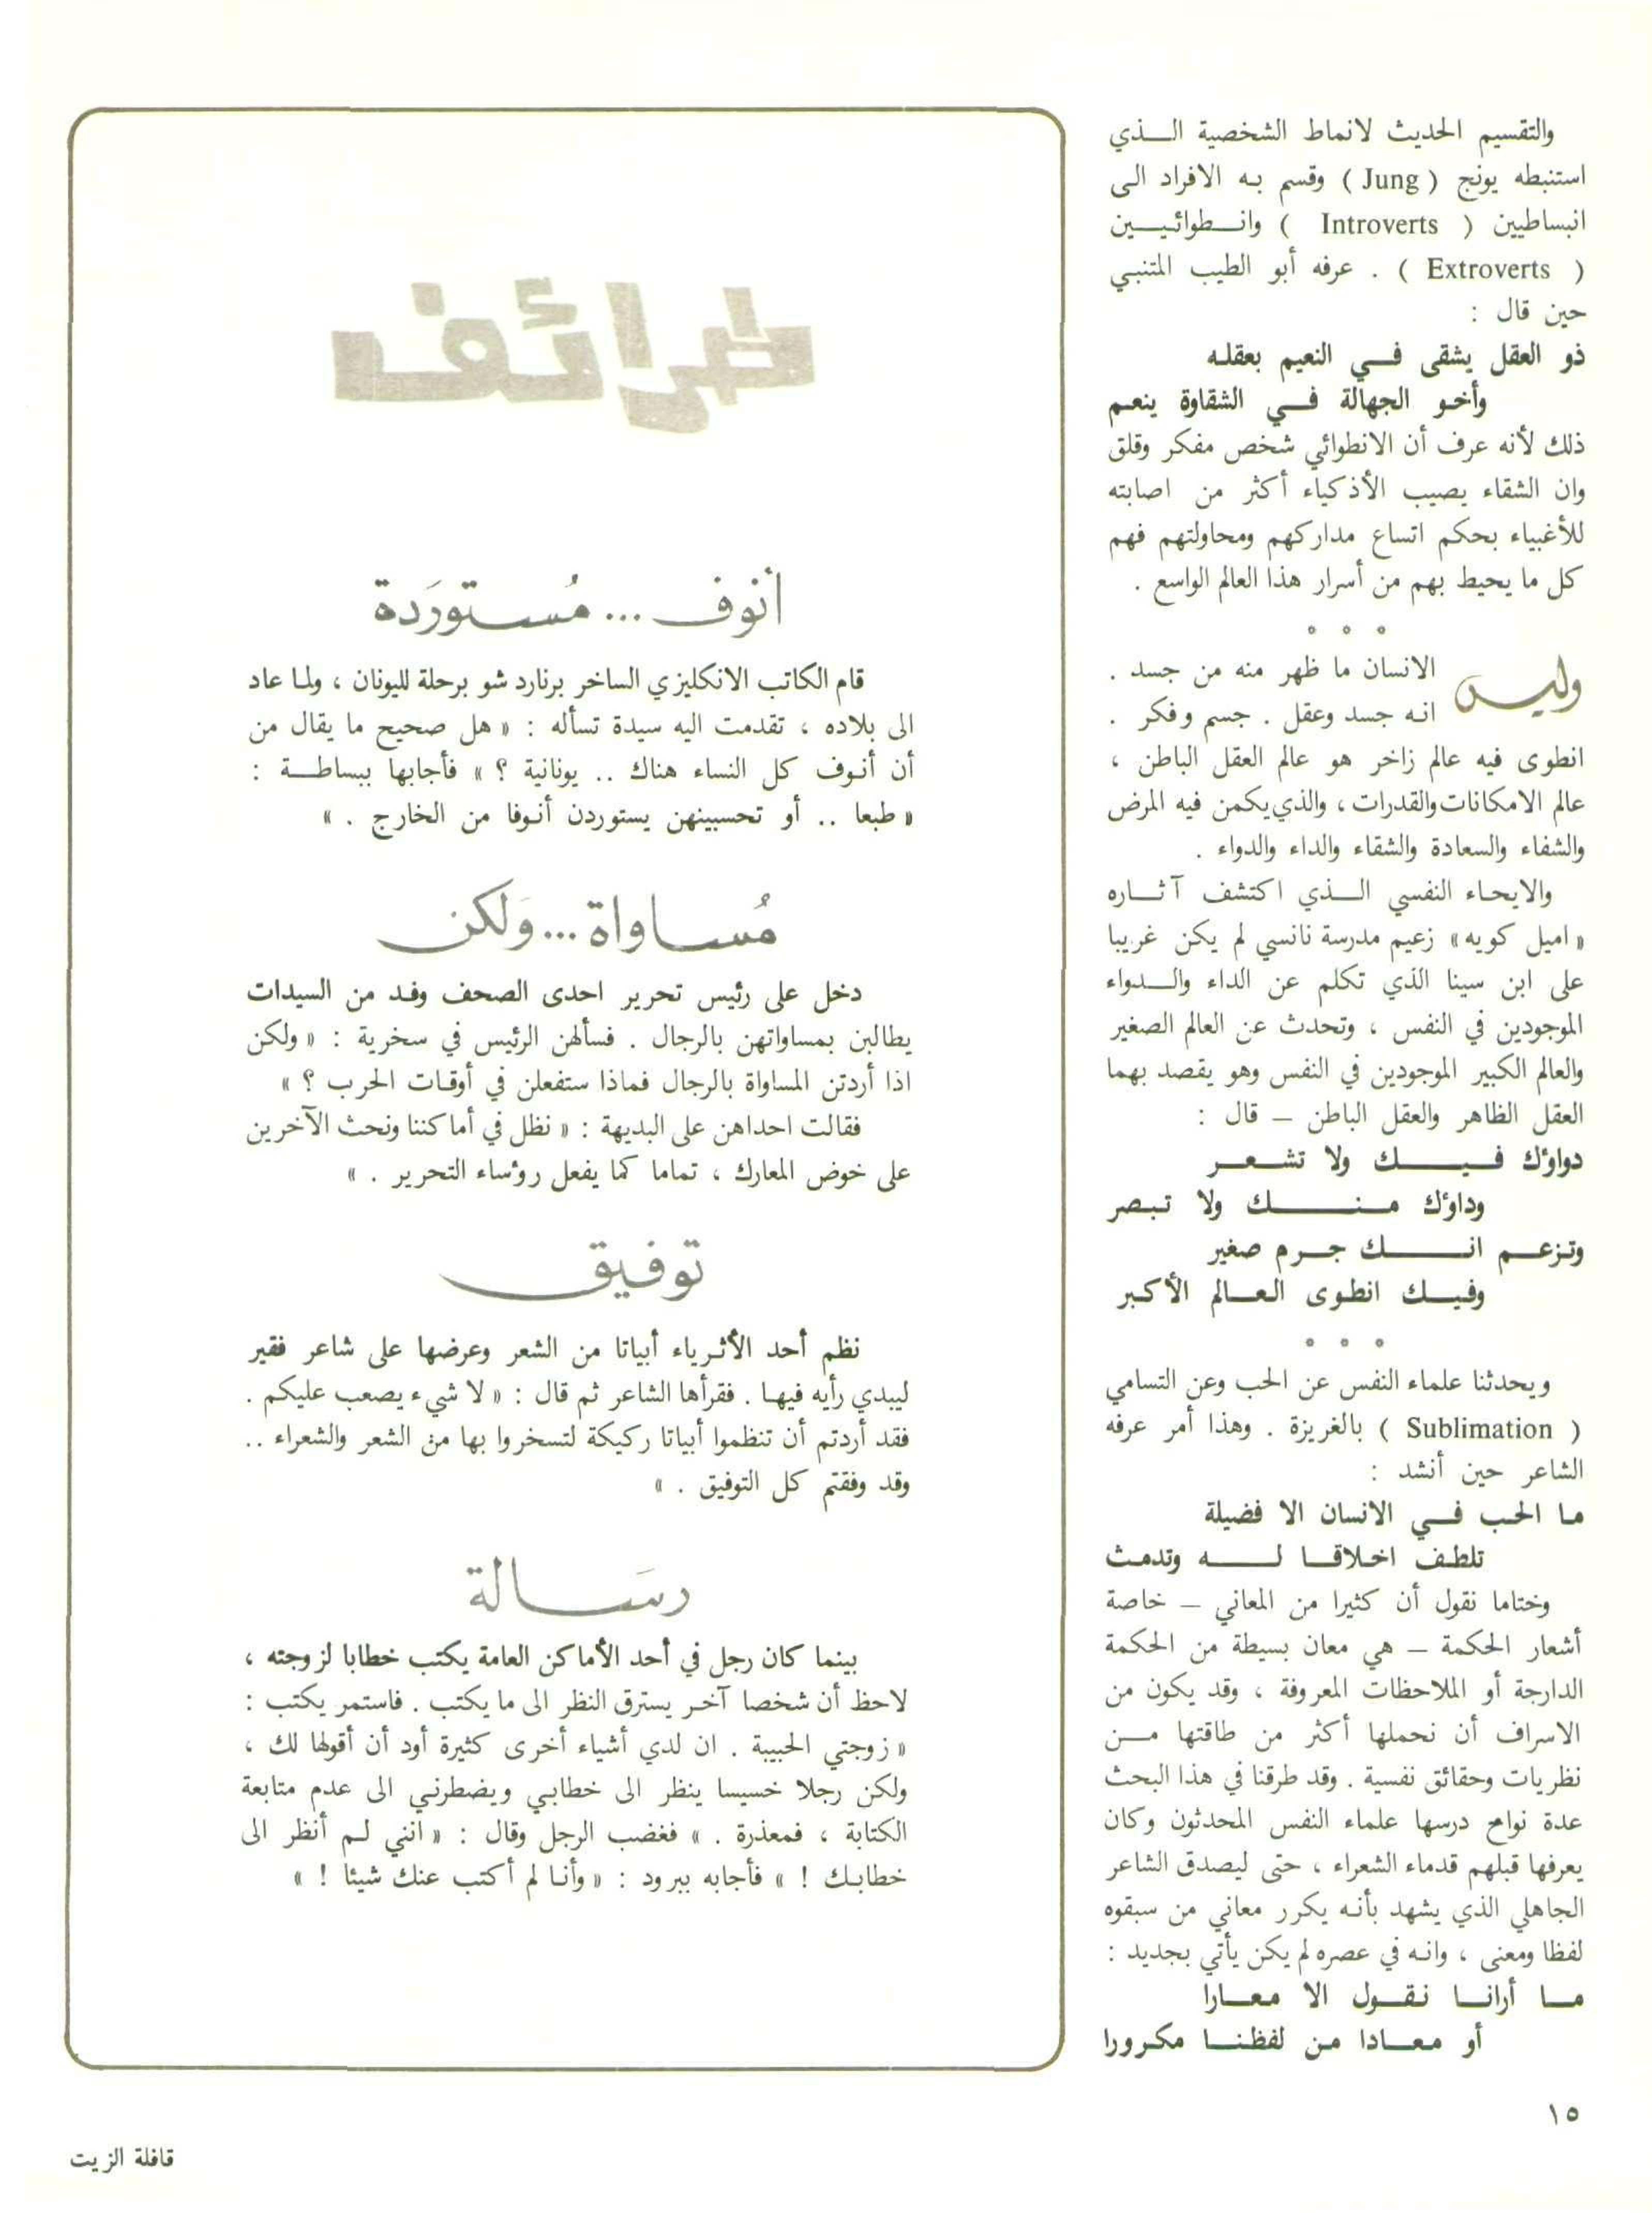 والتقسيم الحديث لانماط الشخصية الـــذي
استنبطه يونج ( Jung ) وقسم بـه الافراد الـى
انبساطيين ( Introverts ) وانـــطوائـيـــين
( Extroverts ) . عرفه أبو الطيب المتنبـي
حين قال :
ذو العقل يشقى فـــي النعيم بعقلـه
وأخـو الجهالة فـــي الشقاوة ينعـم
ذلك لأنه عرف أن الانطوائي شخص مفكر وقلق
وان الشقاء يصيب الأذكياء أكثر من اصابته
للأغبياء بحكم اتساع مداركهم ومحاولتهم فهم
كل ما يحيط بهم من أسرار هذا العالم الواسع .
وليس الانسان ما ظهر منه من جسد .
انـه جسد وعقل . جسم وفكر .
انطوى فيه عالم زاخر هو عالم العقل الباطن ،
عالم الامكانات والقدرات ، والذي يكمن فيه المرض
والشفاء والسعادة والشقاء والداء والدواء .
والايحاء النفسي الـــذي اكتشف آثـــاره
« اميل كويه » زعيم مدرسة نانسي لم يكن غريبا
على ابن سينا الذي تكلم عن الداء والـــدواء
الموجودين في النفس ، وتحدث عن العالم الصغير
والعالم الكبير الموجودين في النفس وهو يقصد بهما
العقل الظاهر والعقل الباطن – قال :
دواؤك فـيــــــك ولا تشـــعـــر
وداؤك مـنــــــــك ولا تـبـصر
وتـزعـــم انــــــــك جـــرم صغير
وفيــك انطـوى العـــالم الأكـبر
ويحدثنا علماء النفس عن الحب وعن التسامي
( Sublimation ) بالغريزة . وهذا أمر عرفه
الشاعر حين أنشد :
مـا الحـب فـــي الانسان الا فضيلة
تلطـف اخـلاقـــا لــــــه وتدمـث
وختاما نقول أن كثيرا من المعاني – خاصة
أشعار الحكمة – هي معان بسيطة من الحكمة
الدارجة أو الملاحظات المعروفة ، وقد يكون من
الاسراف أن نحملها أكثر من طاقتها مـــن
نظريات وحقائق نفسية . وقد طرقنا في هذا البحث
عدة نواح درسها علماء النفس المحدثون وكان
يعرفها قبلهم قدماء الشعراء ، حتى ليصدق الشاعر
الجاهلي الذي يشهد بأنـه يكرر معاني من سبقوه
لفظا ومعنى ، وانـه في عصره لم يكن يأتي بجديد :
مـــا أرانـــا نـقـــول الا معـــارا
أو معـــادا مـن لفظنـــا مكـرورا
طرائف
أنوف ... مُستورَدة
قام الكاتب الانكليزي الساخر برنارد شو برحلة لليونان ، ولمـا عاد
الى بلاده ، تقدمت اليه سيدة تسأله : « هل صحيح ما يقال من
أن أنـوف كل النساء هناك .. يونانية ؟ » فأجابها ببساطـــة :
« طبعا .. أو تحسبينهن يستوردن أنـوفا من الخارج . »
مُساواة ... وَلكن
دخل على رئيس تحرير احدى الصحف وفـد من السيدات
يطالبن بمساواتهن بالرجال . فسألهن الرئيس في سخرية : « ولكن
اذا أردتن المساواة بالرجال فماذا ستفعلن في أوقـات الحرب ؟ »
فقالت احداهن على البديهة : « نظل في أماكننا ونحث الآخرين
على خوض المعارك ، تماما كما يفعل رؤساء التحرير . »
توفيق
نظم أحد الأثـرياء أبياتا من الشعر وعرضها على شاعر فقير
ليبدي رأيه فيهـا . فقرأها الشاعر ثم قال : « لا شيء يصعب عليكم .
فقد أردتم أن تنظموا أبياتا ركيكة لتسخروا بها من الشعر والشعراء ..
وقد وفقتم كل التوفيق . »
رسَالة
بينما كان رجل في أحد الأماكن العامة يكتب خطابا لزوجته ،
لاحظ أن شخصا آخـر يسترق النظر الى ما يكتب . فاستمر يكتب :
« زوجتي الحبيبة . ان لدي أشياء أخرى كثيرة أود أن أقولها لك ،
ولكن رجلا خسيسا ينظر الى خطابـي ويضطرنـي الى عدم متابعة
الكتابة ، فمعذرة . » فغضب الرجل وقال : « انني لـم أنظر الى
خطابـك ! » فأجابه ببرود : « وأنـا لم أكتب عنك شيئا ! »
١٥
قافلة الزيت